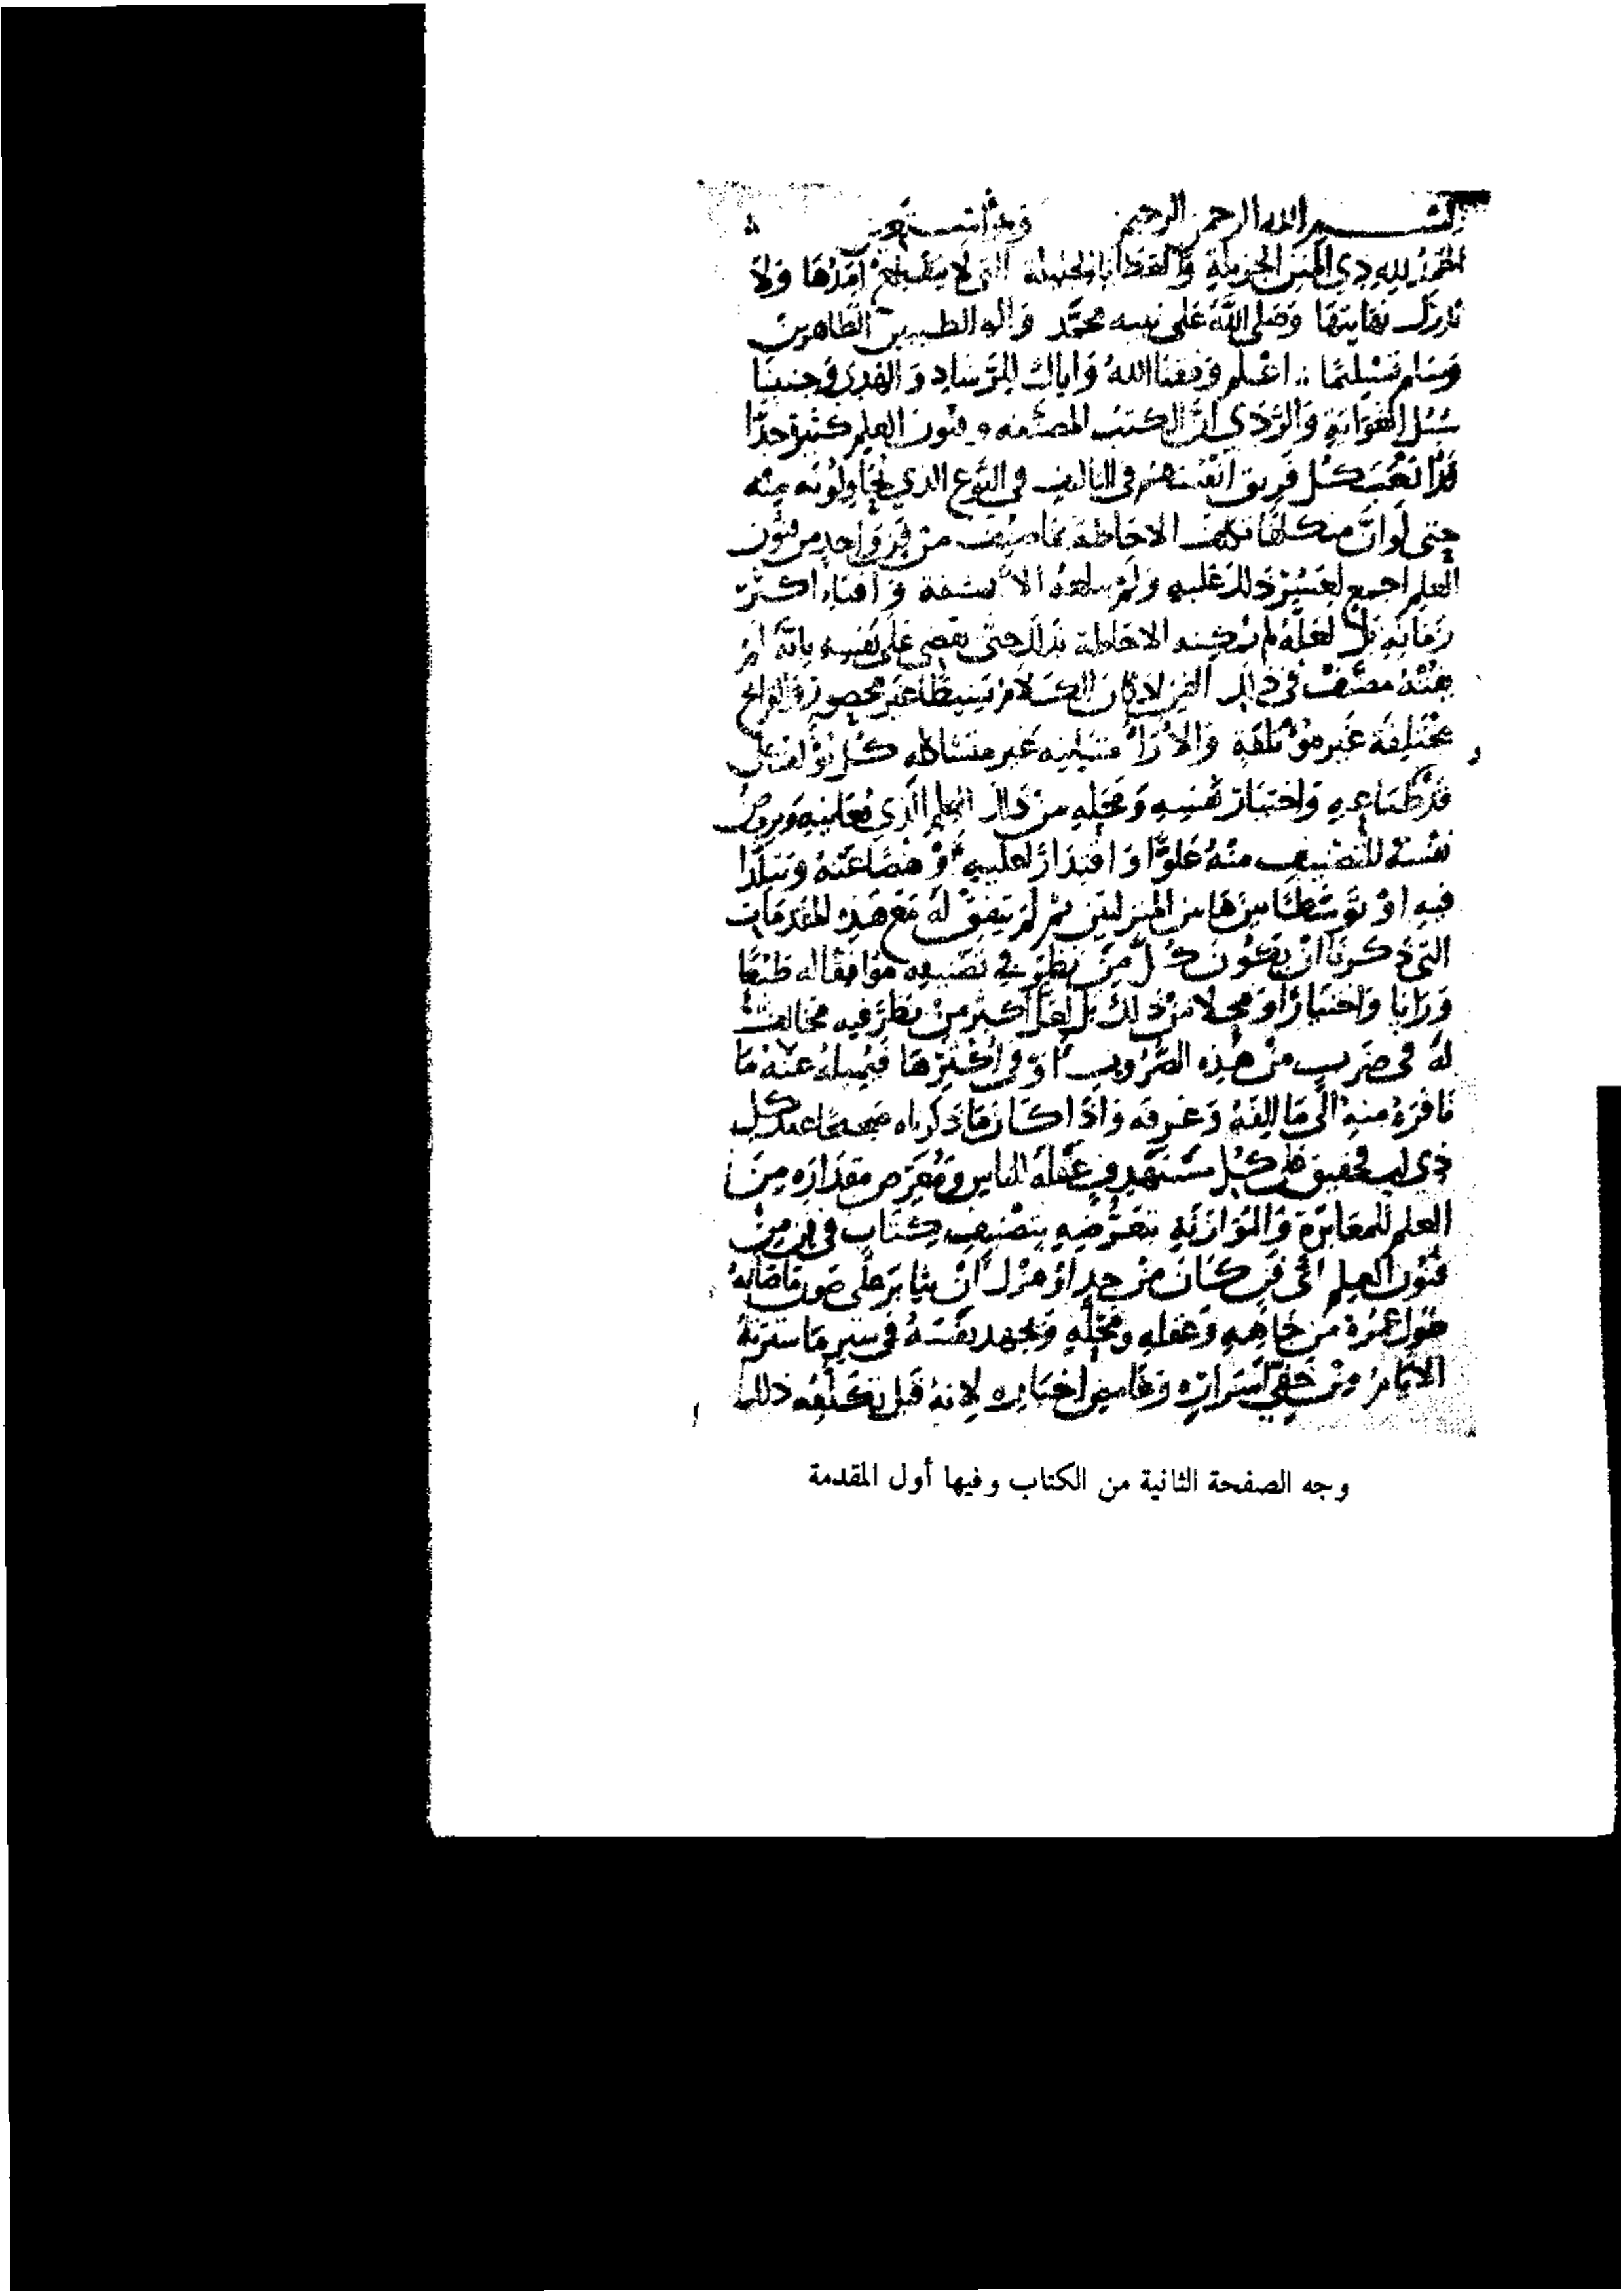 بسم الله الرحمن الرحيم وبه أستعين
الحمد لله ذي المنن الجزيلة والعطايا الجميلة التي لا ينقطع أمدها ولا
تدرك نهايتها وصلى الله على نبيه محمد وآله الطيبين الطاهرين
وسلم تسليما اعلم وفقنا الله وإياك للرشاد والهدى وجنبنا
سبل الغواية والردى أن الكتب المصنفة في فنون العلم كثيرة جدا
قد أتعب كل فريق أنفسهم في التأليف في النوع الذي يحاولونه منه
حتى لو أن متكلفا تكلف الاحاطة بما صنف من فن واحد من فنون
العلم اجمع لعسر ذلك عليه ولم يبلغه الا بمشقة وافناء اكثر
زمانه بل لعله لم يمكنه الاحاطة بذلك حتى يقضي على نفسه بأنه لم
يفته مصنف في ذلك الفن لأن الكلام بسيطا غير محصور والقرائح
مختلفة غير مؤتلفة والآراء متباينة غير متشاكلة كل يؤلف على
قدر طباعه واختيار نفسه ومحله من ذلك العلم الذي يعانيه ويروض
نفسه للتصنيف منه علوا واقتدارا عليه أو نقصا عنه وتبلدا
فيه أو توسطا بين هاتين المنزلتين ثم لم يتفق له مع هذه المقدمات
التي ذكرنا أن يكون كل من نظر في تصنيفه موافقا له طبعا
ورأيا واختيارا ومحلا من ذلك بل لعل أكثر من نظر فيه مخالف
له في ضرب من هذه الضروب أو في أكثرها فيميله عنه ما
نافره منه إلى ما ألفه وعرفه وإذا كان ما ذكرناه صحيحا عند كل
ذي لب فحقيق على كل مستهدف عقله للناس ومعرض مقداره من
العلم للمعايرة والموازنة بتعرضه بتصنيف كتاب في فن من
فنون العلم أي فن كان من جد أو هزل أن يثابر على صون ما صانه
طول عمره من جاهه وعقله ومحله ويجهد نفسه في ستر ما سترته
الأيام من خفي أسراره وغامض اختياره لأنه قبل تكلفه ذلك
وجه الصفحة الثانية من الكتاب وفيها أول المقدمة